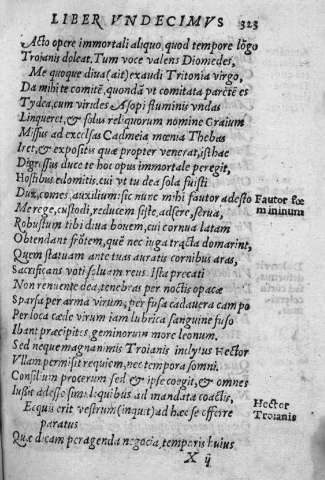 LIBER VNDECIMVS 323
Acto opere immortali aliquo, quod tempore lõgo
Troianis doleat. Tum voce valens Diomedes,
Me quoque diua (ait) exaudi Tritonia virgo,
Da mihi te comitẽ, quondã vt comitata parẽtẽ es
Tydea, cum virides Asopi fluminis vndas
Linqueret, & solus reliquorum nomine Graium
Missus ad excelsas Cadmeia mœnia Thebas
Iret, & expositis quæ propter venerat, isthæc
Digressus duce te hoc opus immortale peregit,
Hostibus edomitis, cui vt tu dea sola fuisti
Dux, comes, auxilium: sic nunc mihi fautor adesto
Fautor fœ
mininum
Me rege, custodi, reducem siste, adsere, serua,
Robustum tibi diua bouem, cui cornua latam
Obtendant frõtem, quẽ nec iuga tracta domarint,
Quem statuam ante tuas auratis cornibus aras,
Sacrificans voti soluam reus. Ista precati
Non renuente dea, tenebras per noctis opacæ
Sparsa per arma virum, per fusa cadauera campo
Per loca cæde virum iam lubrica sanguine fuso
Ibant præcipites geminorum more leonum.
Sed neque magnanimis Troianis inclytus Hector
Vllam permisit requiem, nec tempora somni.
Consilium procerum sed & ipse coegit, & omnes
Iussit adesse simul, quibus ad mandata coactis,
Hector
Troianis
Ecquis erit vestrum (inquit) ad hæc se efferre
paratus
Quæ dicam peragenda negocia, temporis huius
X ij